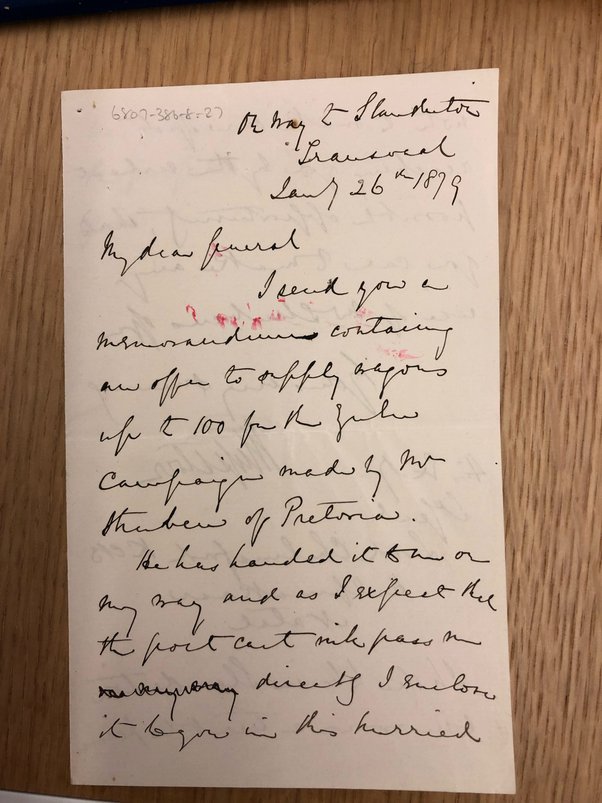 6807-386-8-27
On way to Standerton
Transvaal
Jany 26th 1879
My dear General
I send you a
memorandum containing
an offer to supply wagons
up to 100 for the Zulu
Campaign made by Mr
of Pretoria.
He has handed it to me on
my way and as I expect that
the post cart will pass me
directly I enclose
it to you in this hurried